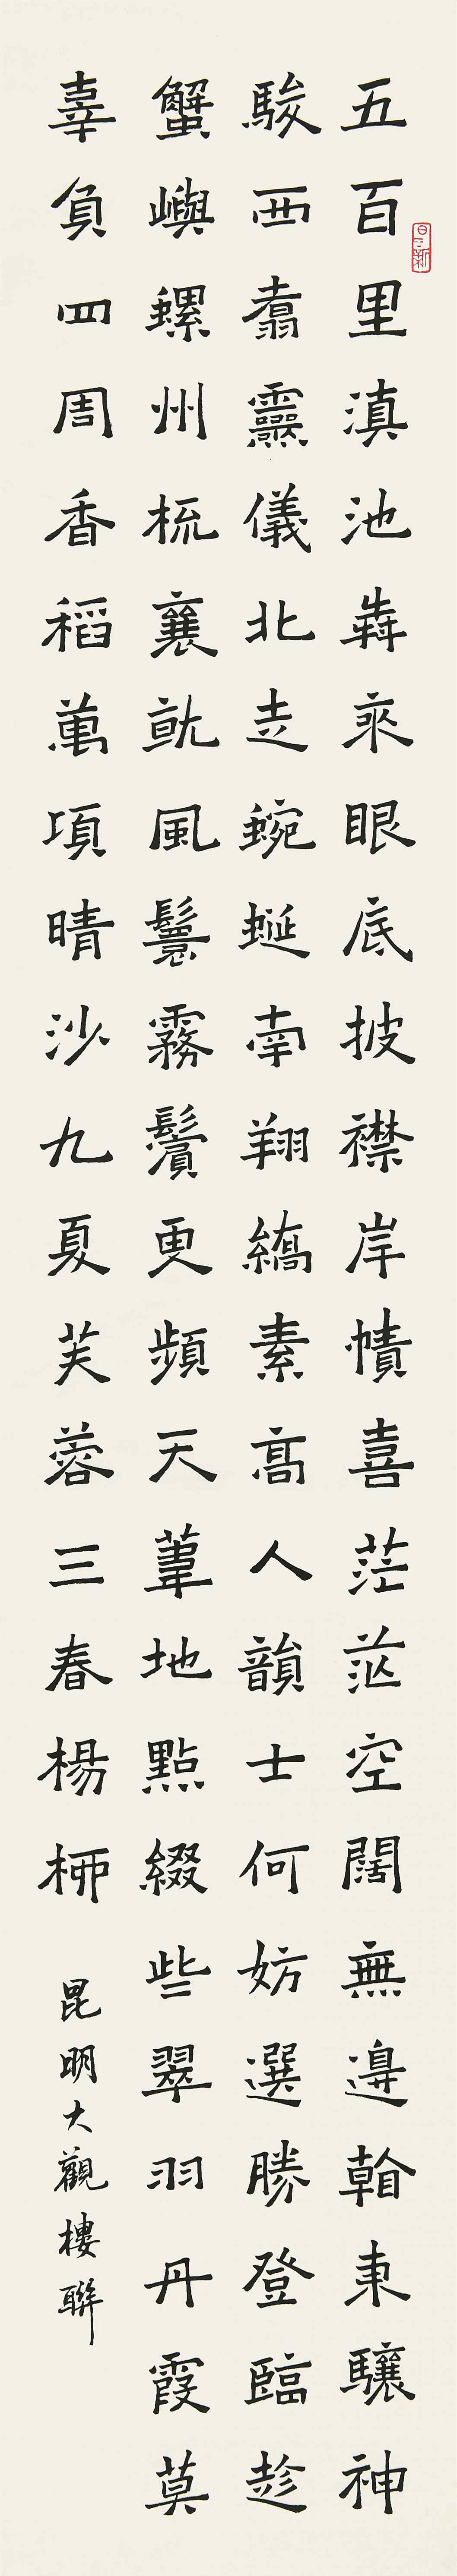 五百里滇池犇來眼底披襟岸幘喜茫茫空闊無邊看東驤神
駿西翥靈儀北走蜿蜒南翔縞素高人韻士何妨選勝登臨趁
蟹嶼螺州梳裹就風鬟霧鬢更頻天葦地點綴些翠羽丹霞莫
辜負四周香稻萬項晴沙九夏芙蓉三春楊柳
昆明大觀樓聯